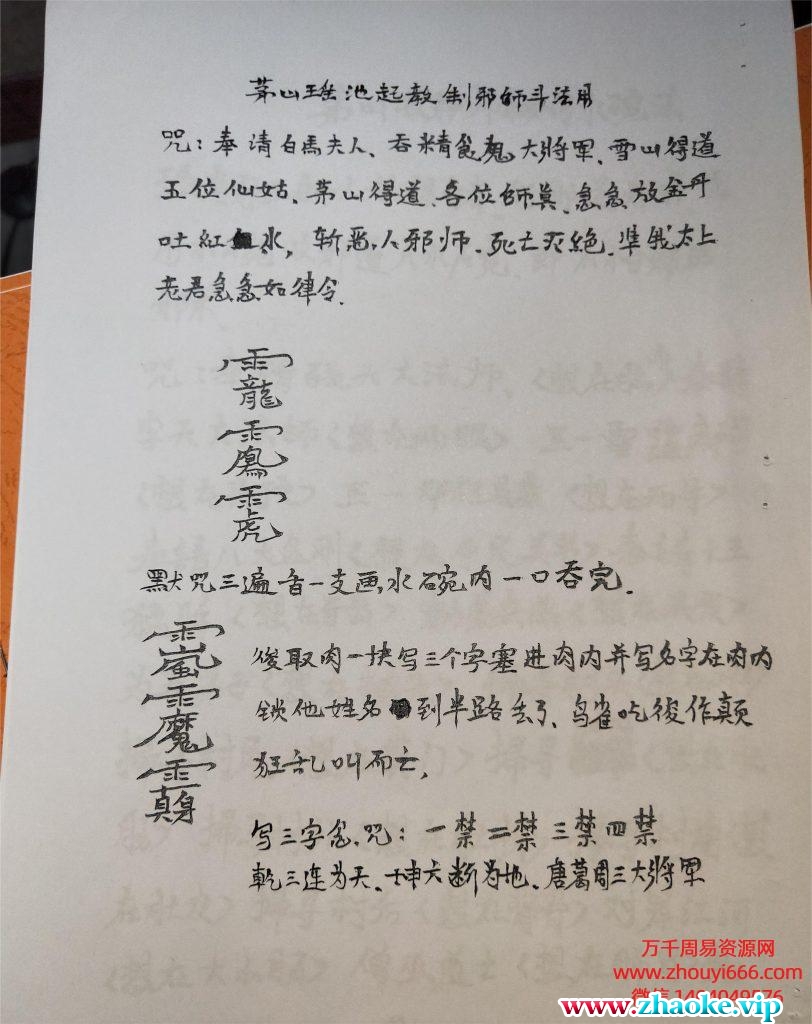 茅山瑶池起教制邪師斗法用
咒：奉请白馬夫人、吞精食鬼大將軍、雪山得道
五位仙姑、茅山得道、各位師真、急急放金丹
吐紅水，斩恶人邪师．死亡灭绝．準我太上
老君急急如律令．
䨺
默咒三遍香一支画水碗内一口吞完．
後取肉一块写三个字塞进肉内并写名字在肉内
锁他姓名到半路丢了、鸟雀吃後作颠
狂乱叫而亡，
写三字念咒：一禁二禁三禁四禁
乾三连为天、坤六断为地、唐葛周三大將軍
万千周易资源网
www.zhouyi666.com
www.zhaoke.vip